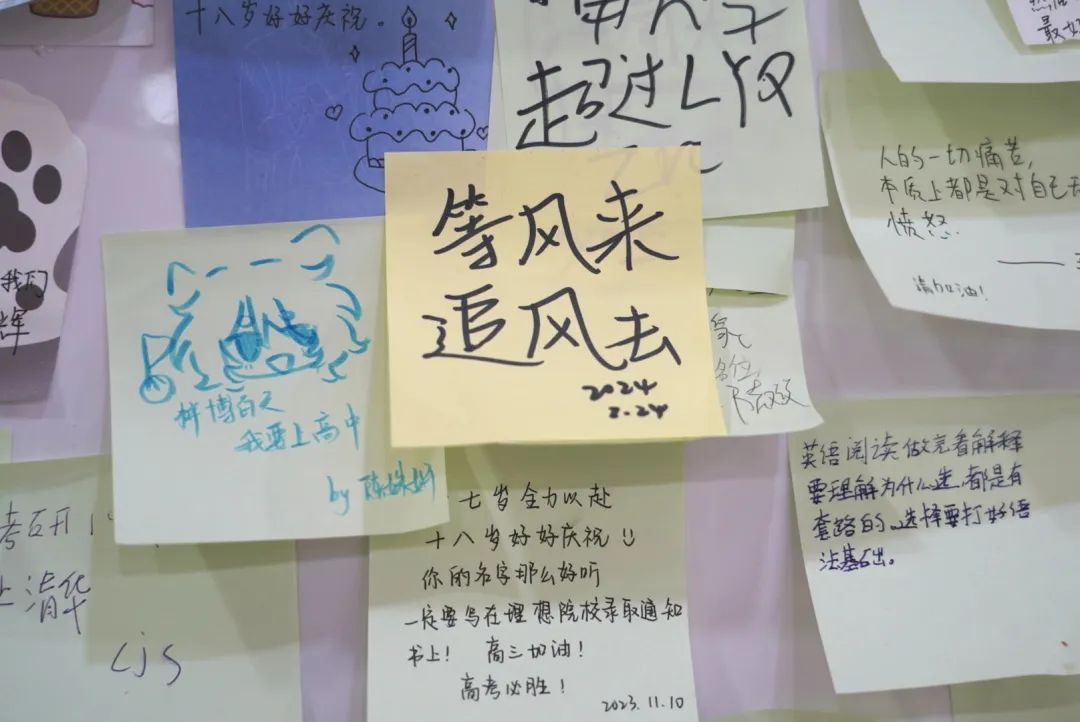 十八岁好好庆祝。
超过LYQ
最好
人的一切痛苦，
本质上都是对自己无
愤怒.
请加油！
我们
辉
等风来
追风去
2024
2.24
梓博白久
我要上高中
by 陈姝妍
英语阅读做完看解释
要理解为什么选.都是有
套路的。选择要打好语
法基础。
考研
上清华
cjs
七岁全力以赴
十八岁好好庆祝
你的名字那么好听
一定要写在理想院校录取通知
书上！ 高三加油！
高考必胜！
2023.11.10